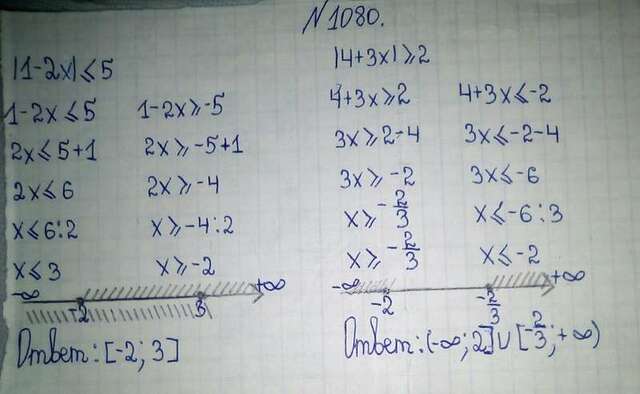 N1080.
|1-2x|≤5
1-2x≤5 1-2x≥-5
2x≤5+1 2x≥-5+1
2x≤6 2x≥-4
x≤6:2 x≥-4:2
x≤3 x≥-2
-∞ +∞
-2 3
Ответ: [-2; 3]
|4+3x|≥2
4+3x≥2 4+3x≤-2
3x≥2-4 3x≤-2-4
3x≥-2 3x≤-6
x≥-2/3 x≤-6:3
x≥-2/3 x≤-2
-∞ +∞
-2 -2/3
Ответ: (-∞; 2]∪[-2/3; +∞)